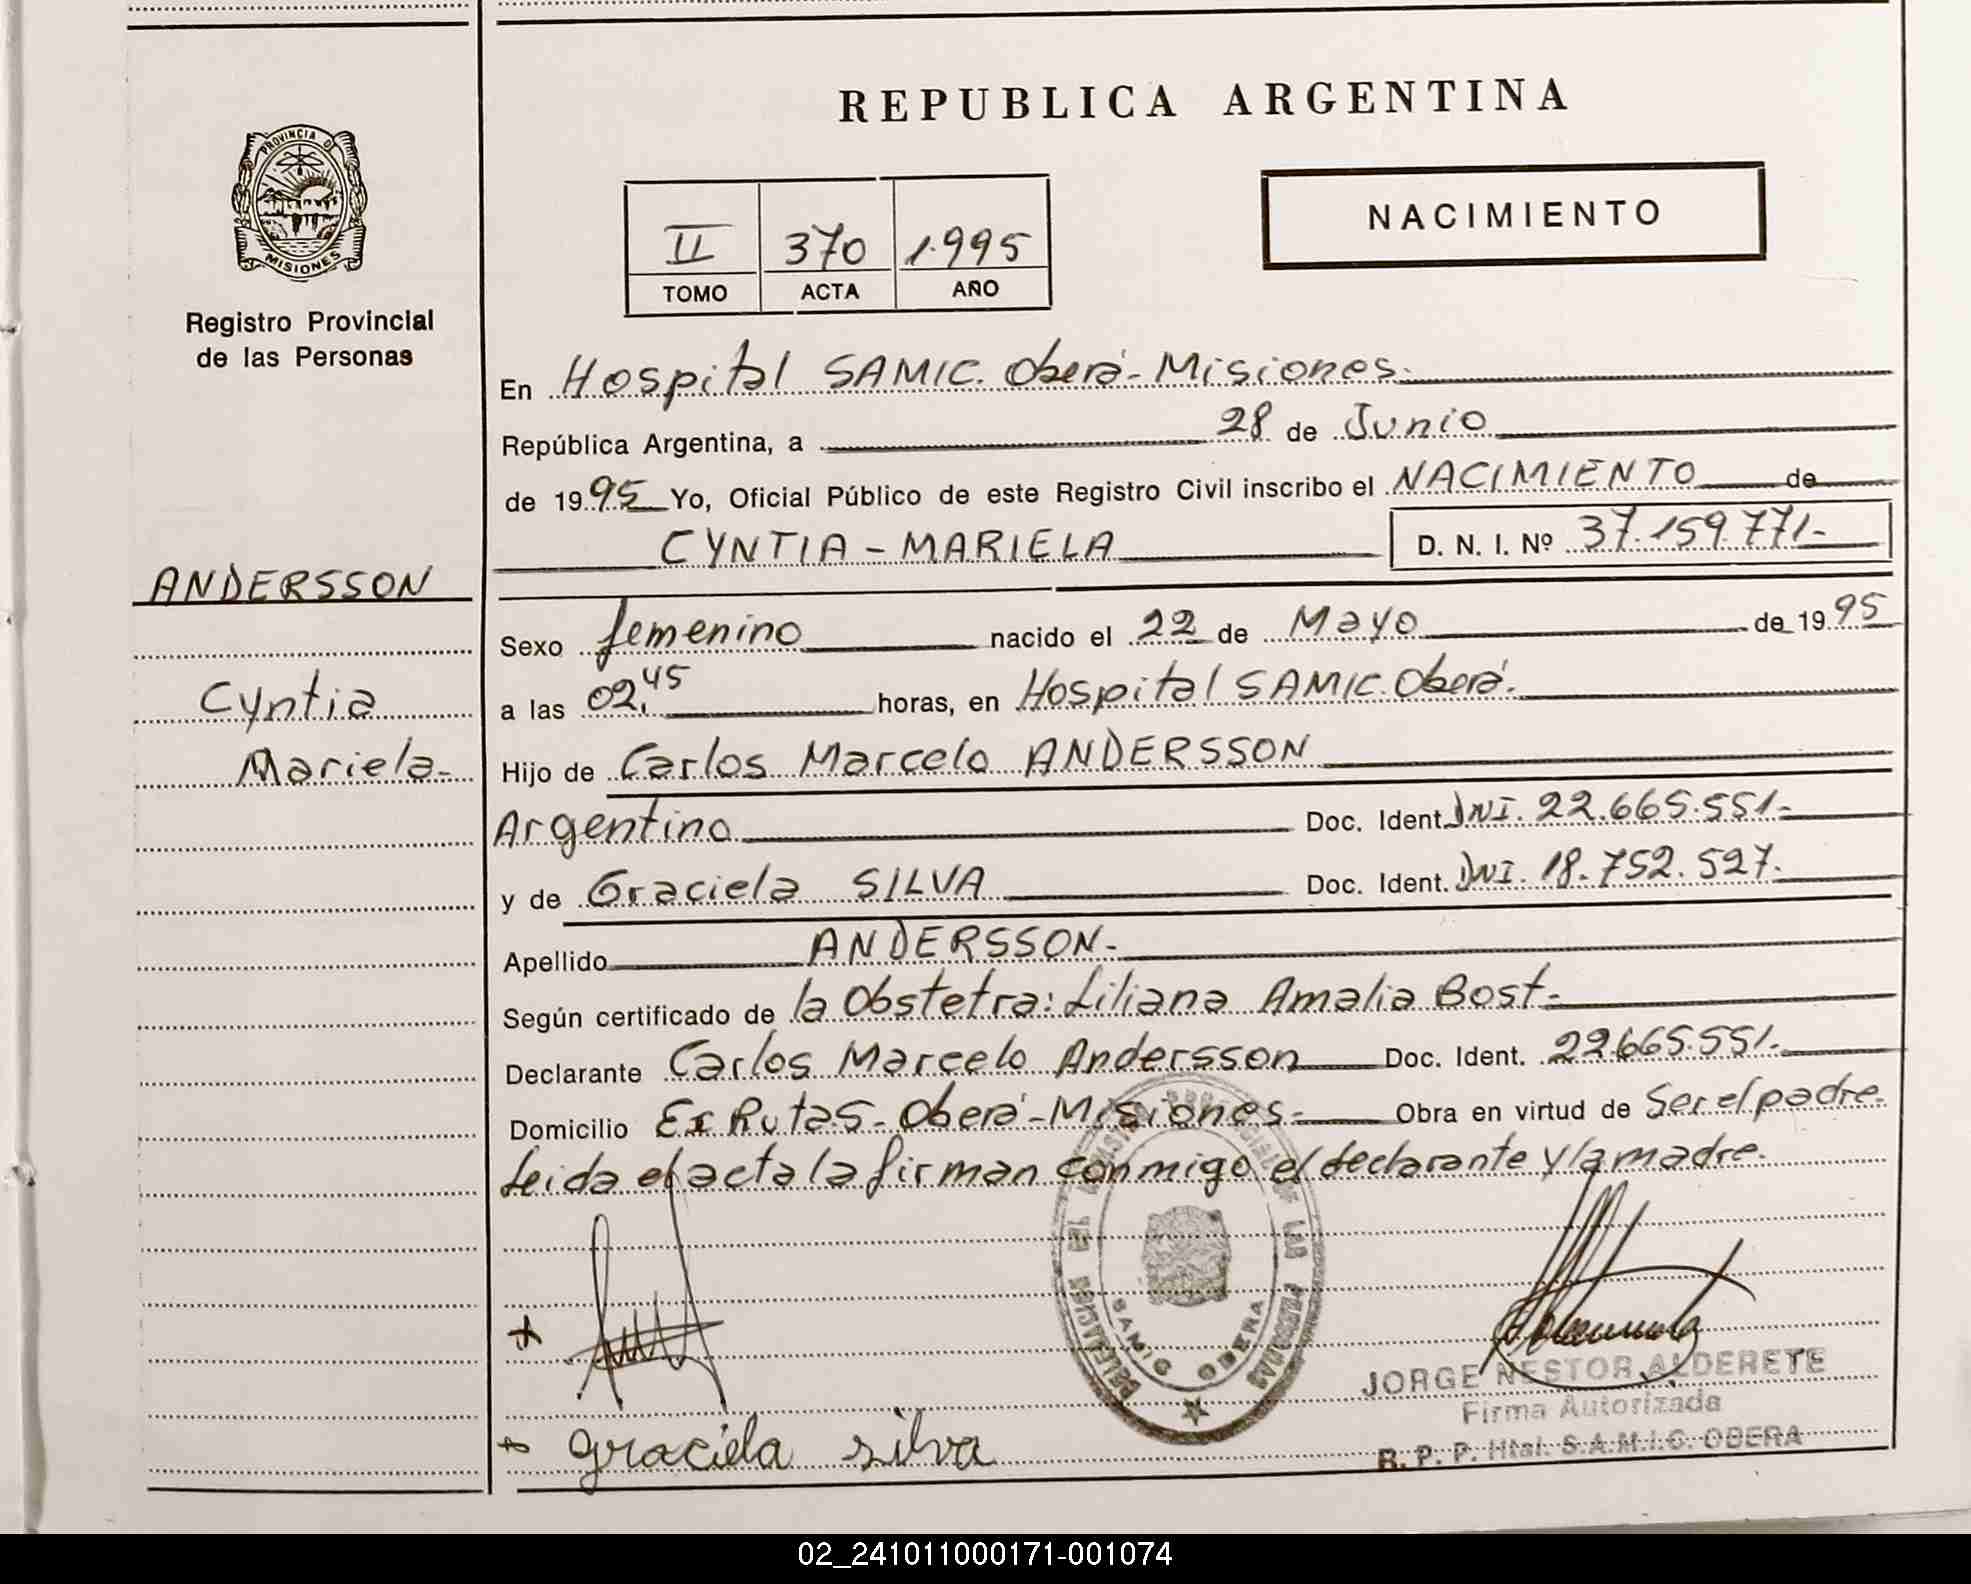 PROVINCIA D
MISIONES
Registro Provincial
de las Personas
ANDERSSON
Cyntia
Mariela-
REPUBLICA ARGENTINA
II 370 1.995
TOMO ACTA AÑO
NACIMIENTO
En Hospital SAMIC. Oberá-Misiones.
República Argentina, a 28 de Junio
de 1995 Yo, Oficial Público de este Registro Civil inscribo el NACIMIENTO de
CYNTIA-MARIELA D. N. I. Nº 37.159.771-
Sexo femenino nacido el 22 de Mayo de 1995
a las 02,45 horas, en Hospital SAMIC. Oberá.
Hijo de Carlos Marcelo ANDERSSON
Argentino Doc. Ident. DNI. 22.665.551-
y de Graciela SILVA Doc. Ident. DNI. 18.752.527.
Apellido ANDERSSON-
Según certificado de la Obstetra: Liliana Amalia Bost-
Declarante Carlos Marcelo Andersson Doc. Ident. 22.665.551.
Domicilio Ex Ruta 5- Oberá-Misiones- Obra en virtud de Ser el padre.
Leida el acta la firman conmigo el declarante y la madre.
DELEGACION DEL PROVINCIAL DE LAS PERSONAS
SAMIC OBERA
JORGE NESTOR ALDERETE
Firma Autorizada
R. P. P. Htal. S.A.M.I.C. OBERA
+ graciela silva
02_241011000171-001074